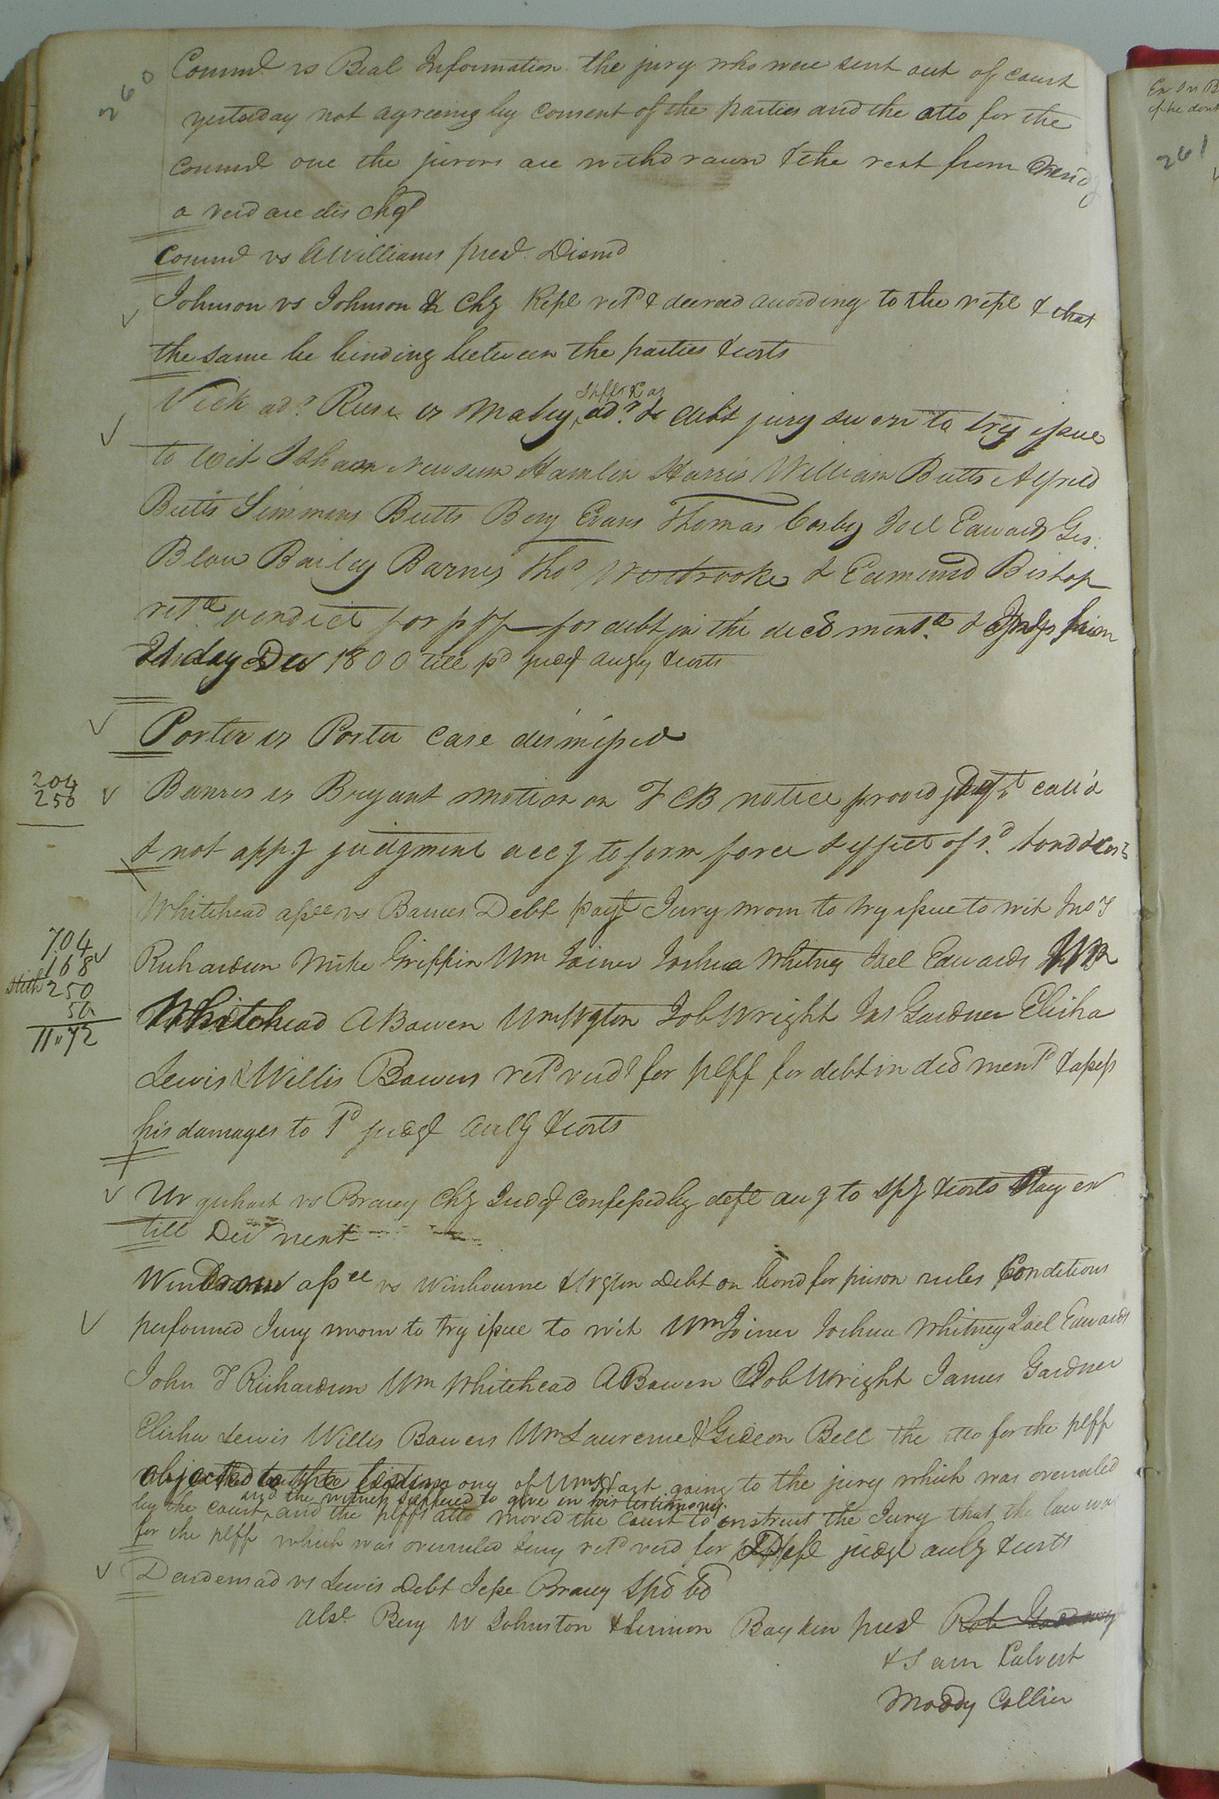 260
Commd vs Beal Information the jury who were sent out of court
yesterday not agreeing by consent of the parties and the atto for the
commd one the jurors are withdrawn & the rest from
a verd are dischgd
Commd vs A Williams presd. Dismd
Johnson vs Johnson &c Chy Repl retd & decreed according to the repl & that
the same be binding between the parties & costs
Vick adr. Ruse vs Mabry adr. &c debt jury sworn to try issue
to wit Isham Newsum Hamlin Harris William Butts Alfred
Butts Simmons Butts Benj Evans Thomas Cosby Joel Edwards Geo:
Blow Bailey Barnes Thos Westbrooke & Edmund Bishop
retd. verdict for plff for debt in the decl mentd. & from
day Dec 1800 till pd judgt accg & costs
Porter vs Porter case dismissed
204
250
Barnes vs Bryant motion on F C B notice proved Deft call'd
& not appg judgment accg to form force & effect of sd. bond & costs
Whitehead assee vs Barnes Debt payt Jury sworn to try issue to wit Jno T
Richardson Mike Griffin Wm Joiner Joshua Whitney Joel Edwards Wm
Whitehead A Bowen Wm Job Wright Jas Gardner Elisha
Lewis & Willis Bowers retd verdt for plff for debt in decl mentd & assess
his damages to 1d judgt accg & costs
7.04
168
250
50
11.72
Urquhart vs Chy Judgt confessed by deft accg to spy & costs Stay ex
till Decr next
assee vs Winbourne & debt on bond for prison rules conditions
performed Jury sworn to try issue to wit Wm Joiner Joshua Whitney Joel Edwards
John T Richardson Wm Whitehead A Bowen Job Wright James Gardner
Elisha Lewis Willis Bowers Wm Laurence & Gideon Bell the atto for the plff
objected to the testimony of Wm going to the jury which was overruled
and the witness suffered to give in his testimony
by the court, and the plffs atto moved the court to instruct the Jury that the law was
for the plff which was overruled Jury retd verd for Deft judgt accg & costs
Deardens ad vs Lewis Debt Jesse spd bd
absd Benj W Johnston & Simon Boykin presd Rob
& Sam Calvert
Moody Collier
261